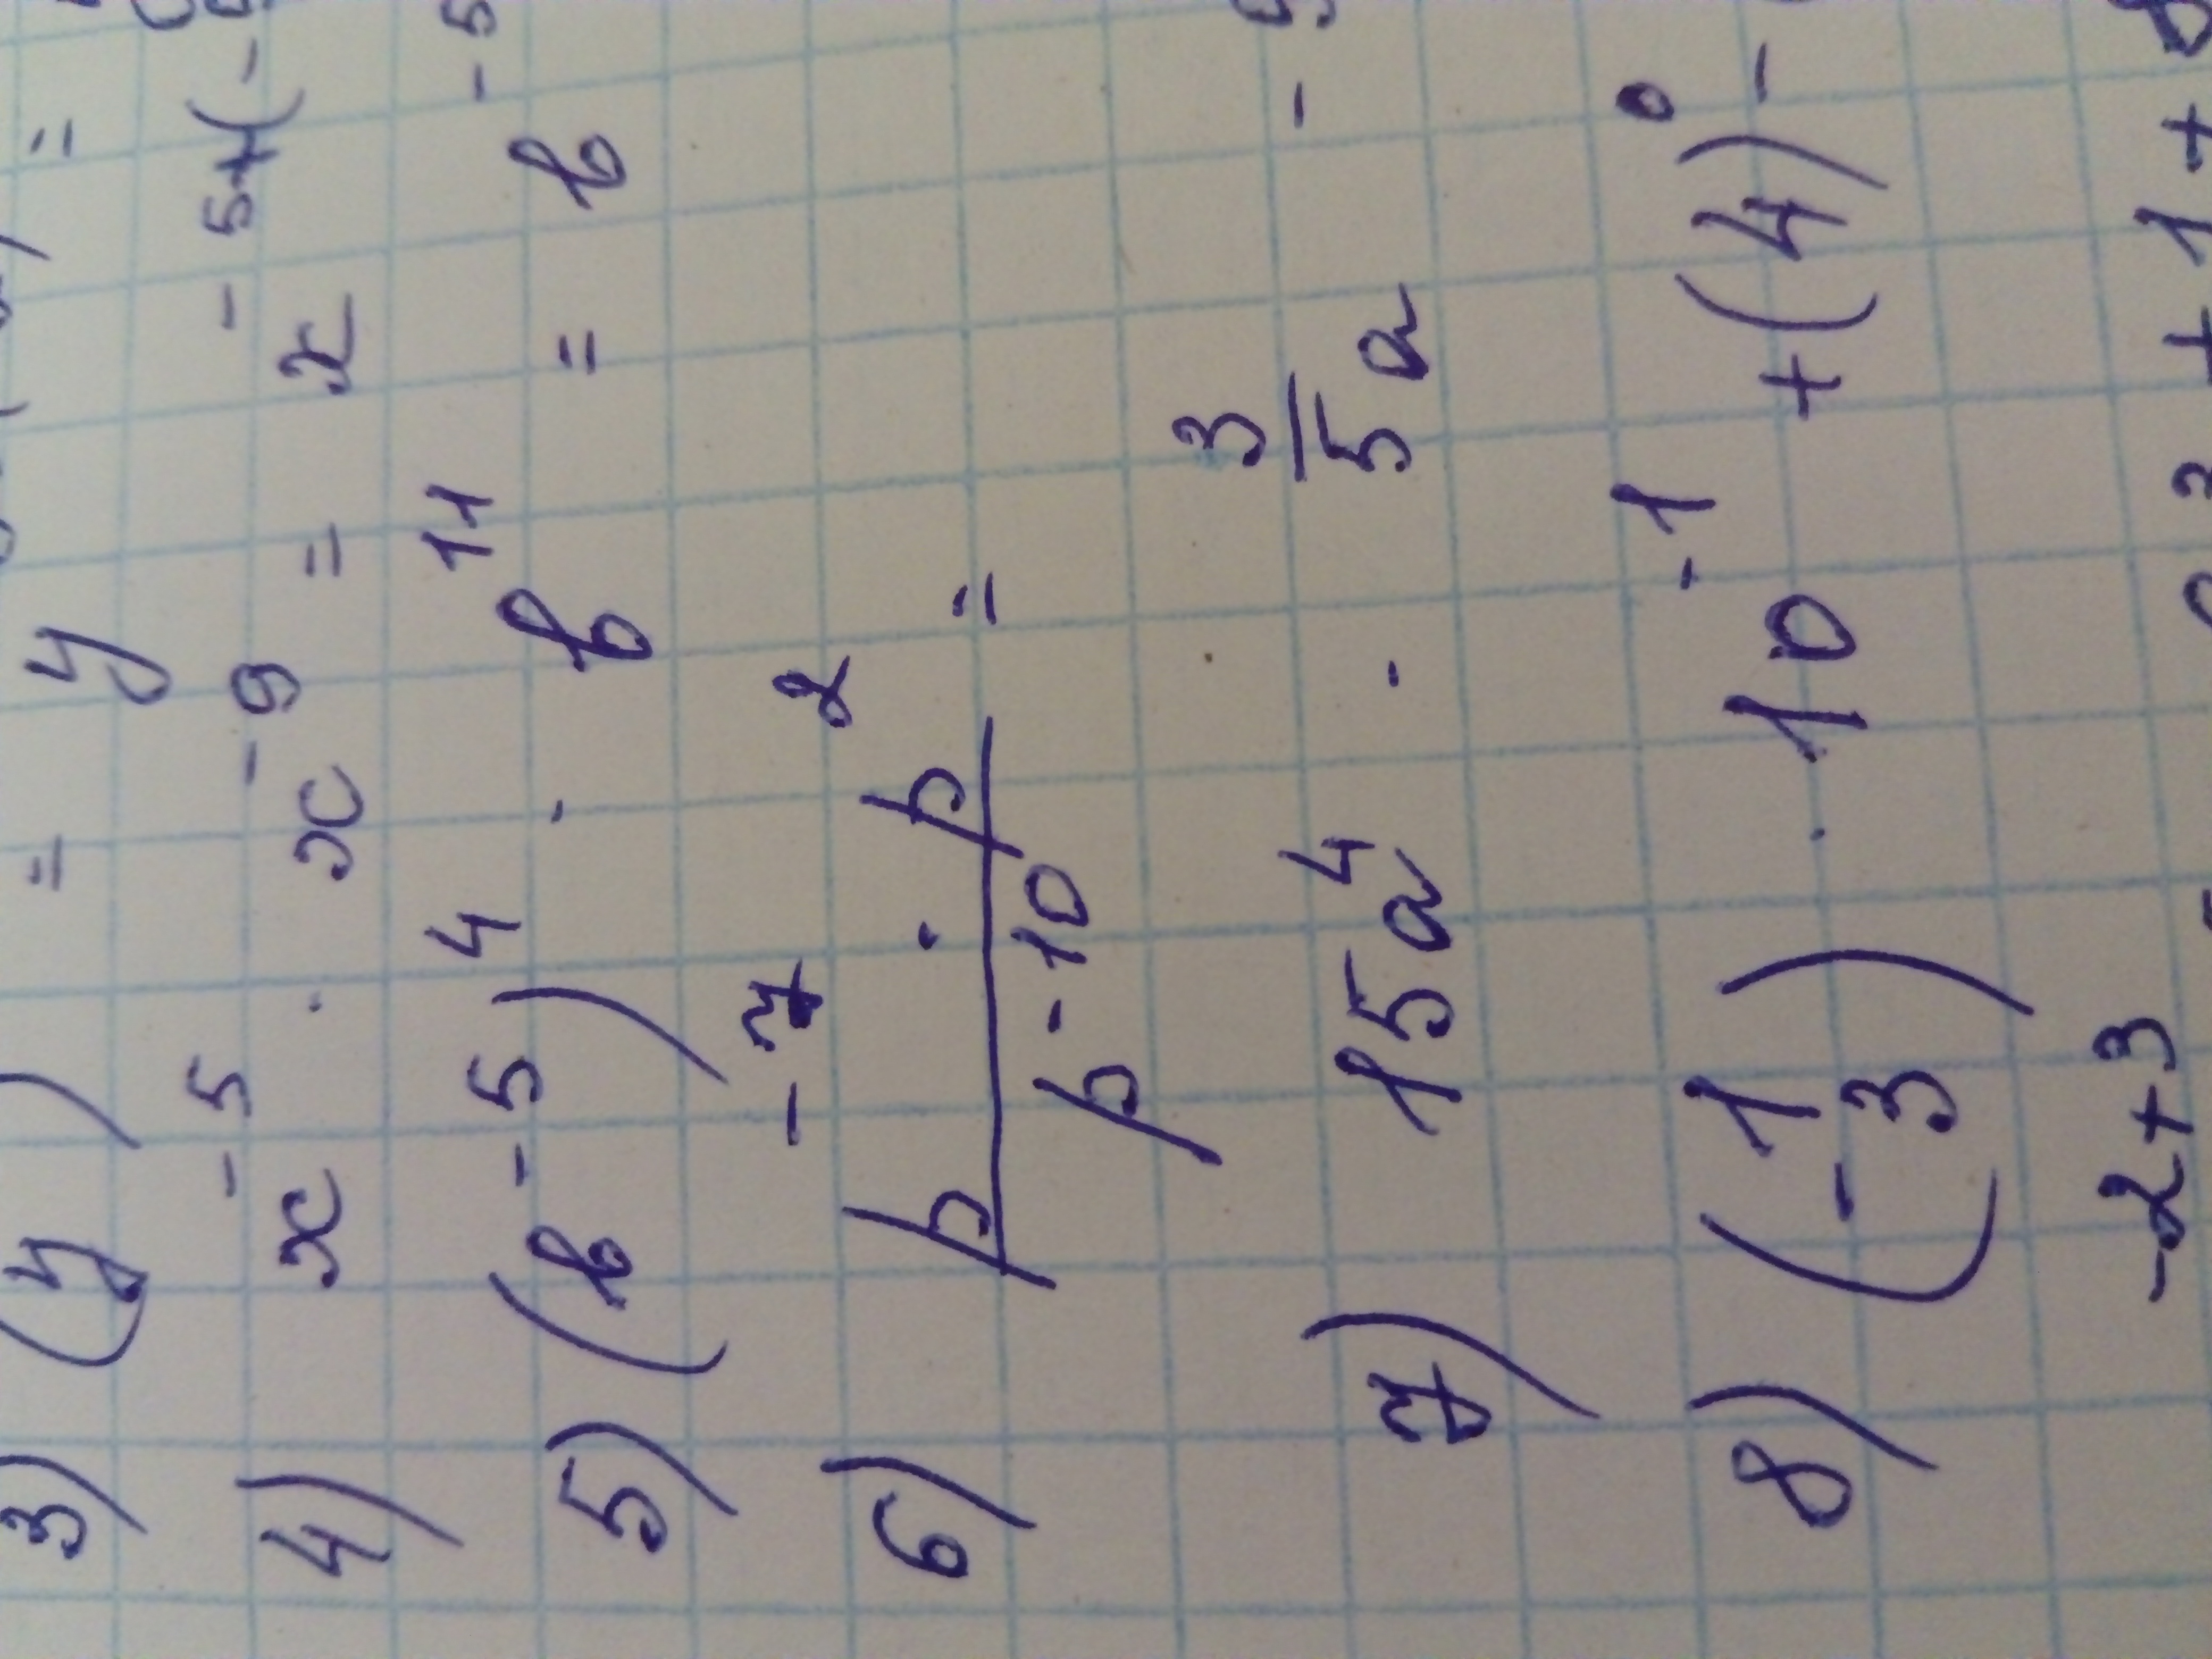 3) (y ) = y
4) x⁻⁵ · x⁻⁹ = x⁻⁵⁺⁽⁻
5) (b⁻⁵)⁴ · b¹¹ = b⁻⁵
6) p⁻⁷ · p² / p⁻¹⁰ =
7) 15a⁴ · 3/5 a -
8) (-1/3) · 10⁻¹ + (4)⁰ -
-2+3 + 1 +